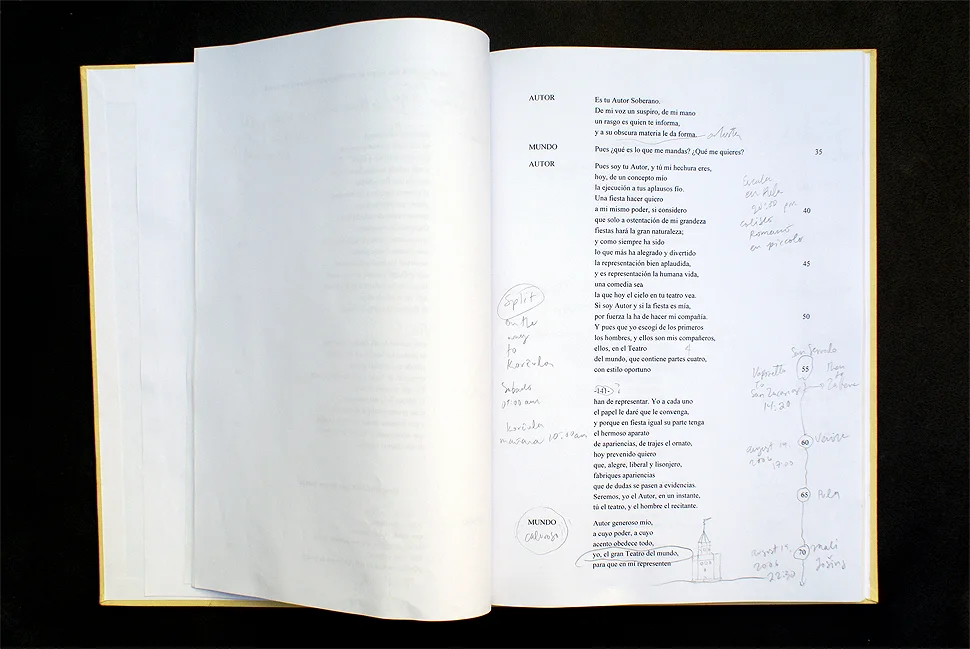 AUTOR
Es tu Autor Soberano.
De mi voz un suspiro, de mi mano
un rasgo es quien te informa,
y a su obscura materia le da forma.
MUNDO
Pues ¿qué es lo que me mandas? ¿Qué me quieres?
35
AUTOR
Pues soy tu Autor, y tú mi hechura eres,
hoy, de un concepto mío
la ejecución a tus aplausos fío.
Una fiesta hacer quiero
a mi mismo poder, si considero
40
que solo a ostentación de mi grandeza
fiestas hará la gran naturaleza;
y como siempre ha sido
lo que más ha alegrado y divertido
la representación bien aplaudida,
45
y es representación la humana vida,
una comedia sea
la que hoy el cielo en tu teatro vea.
Si soy Autor y si la fiesta es mía,
por fuerza la ha de hacer mi compañía.
50
Y pues que yo escogí de los primeros
los hombres, y ellos son mis compañeros,
ellos, en el Teatro
4
del mundo, que contiene partes cuatro,
con estilo oportuno
55
-141-
?
han de representar. Yo a cada uno
el papel le daré que le convenga,
y porque en fiesta igual su parte tenga
el hermoso aparato
de apariencias, de trajes el ornato,
60
hoy prevenido quiero
que, alegre, liberal y lisonjero,
fabriques apariencias
que de dudas se pasen a evidencias.
Seremos, yo el Autor, en un instante,
65
tú el teatro, y el hombre el recitante.
MUNDO
Autor generoso mío,
a cuyo poder, a cuyo
acento obedece todo,
yo, el gran Teatro del mundo,
70
para que en mí representen
en Pula
coliseo
Romano
en piccolo
Split
on the
way
to
Korčula
Sábado
Korčula
mañana 10:00 am
Vaporetto
to
San Zacarias
14:20
Venice
august 19
2006
17:00
Pula
august 19
2006
22:30
mali
Lošinj